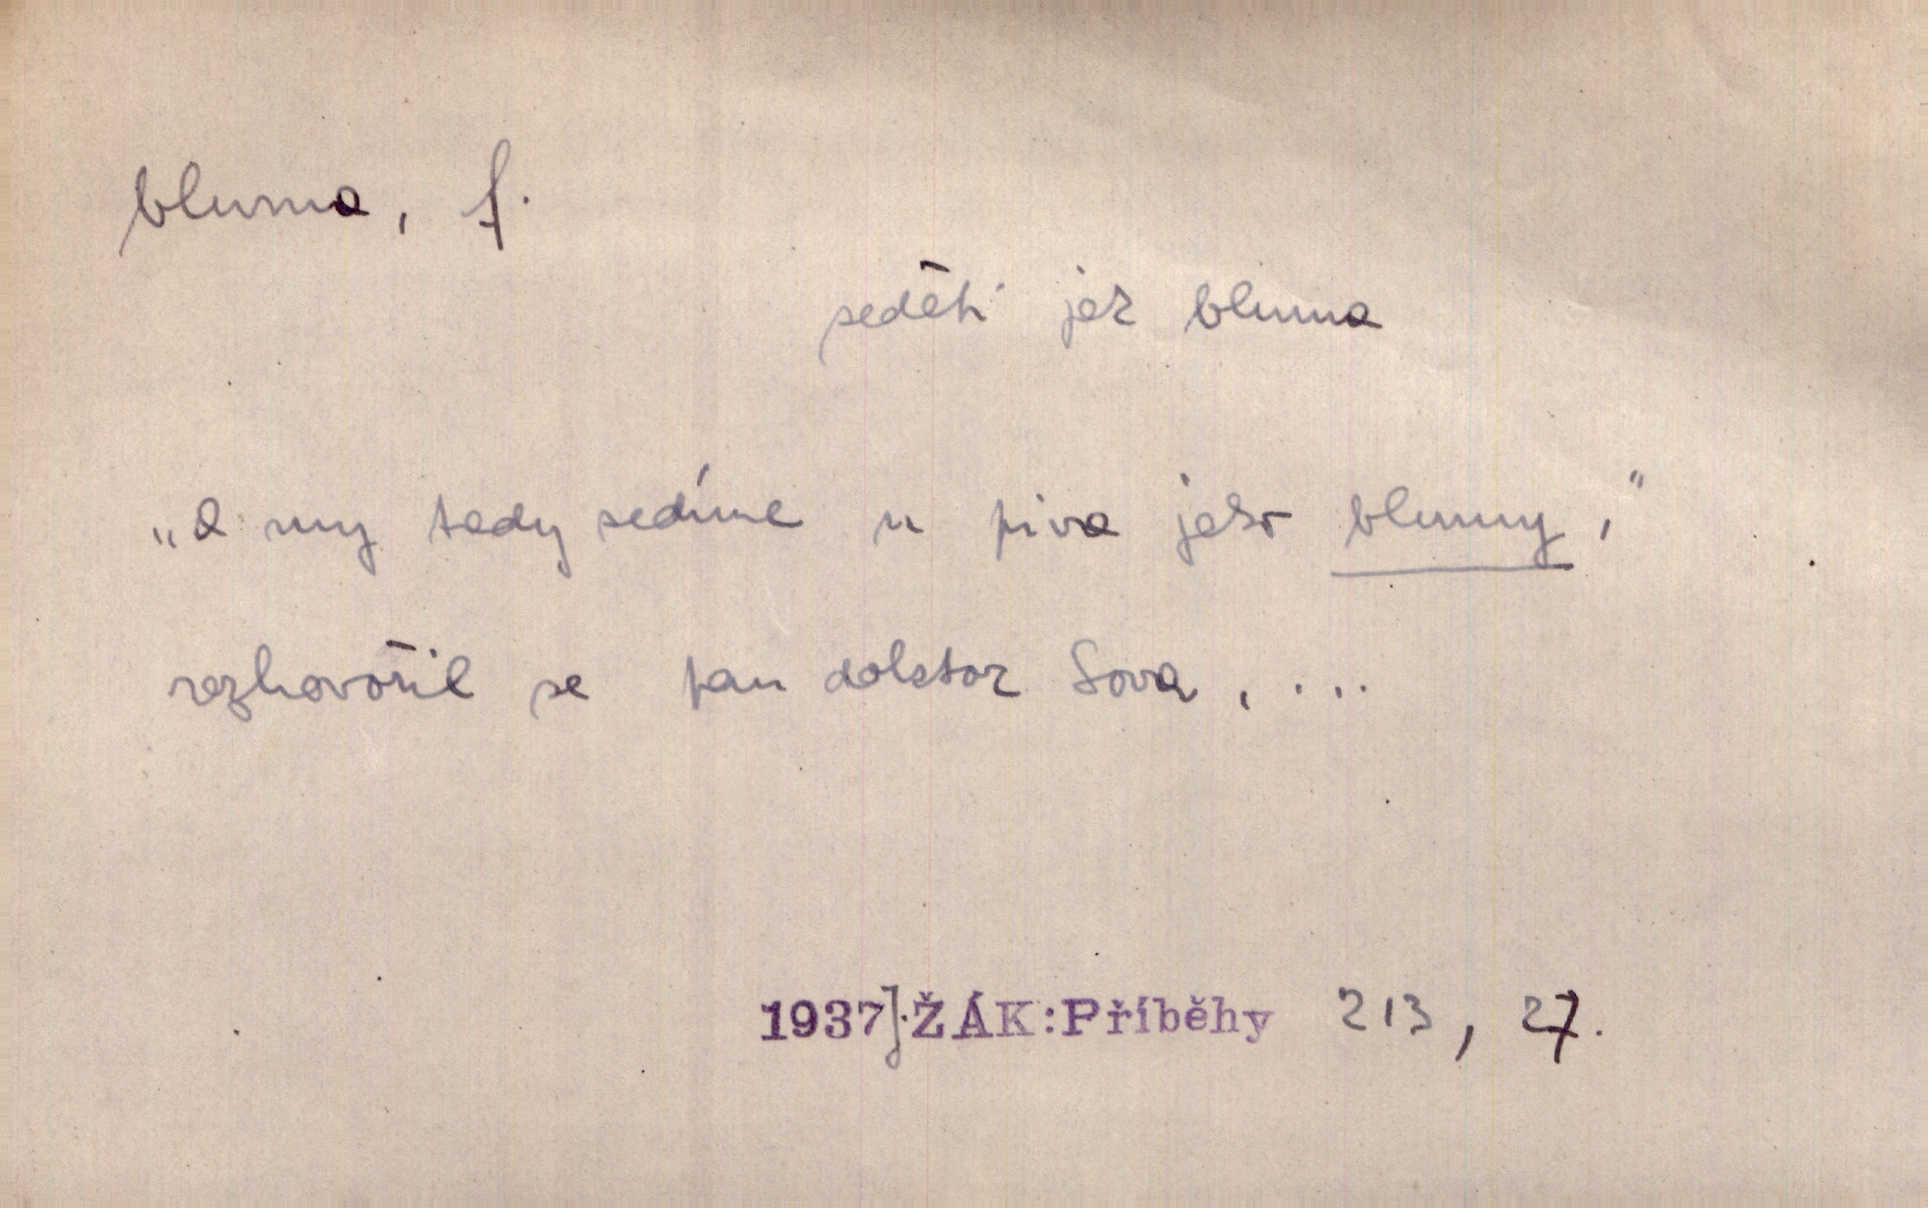 bluma, f.
seděti jak bluma
„a my tady sedíme u piva jako blumy,"
rozhovořil se pan doktor Sova, ...
1937] ŽÁK: Příběhy 213, 27.